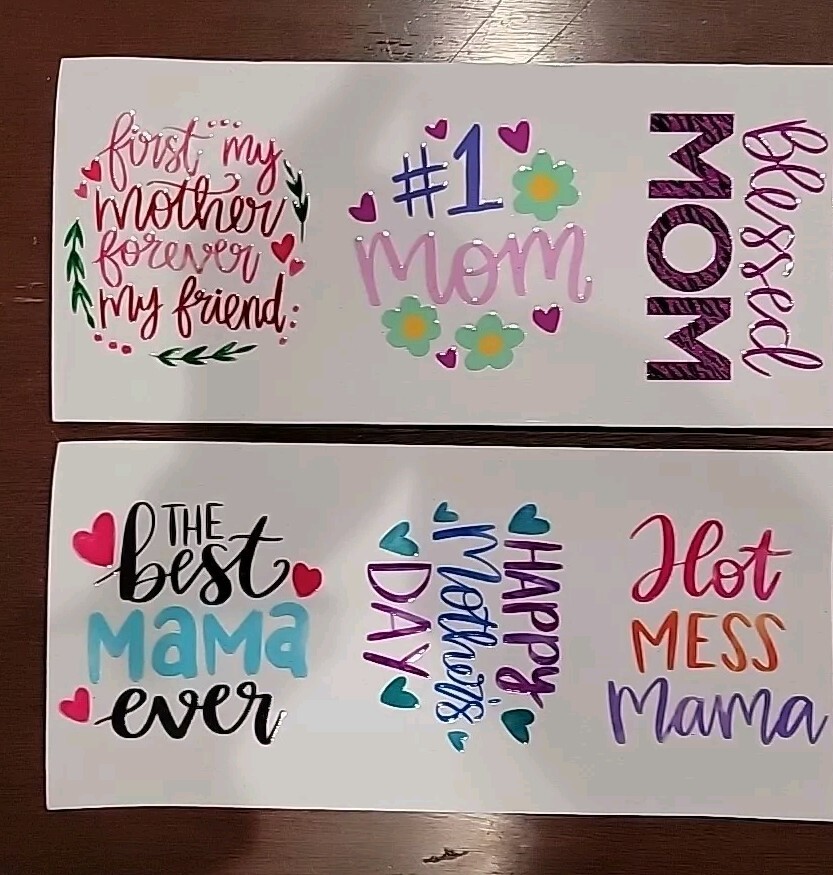 first my
mother
forever
my friend
#1
Mom
Blessed
MOM
THE
best
MAMA
ever
HAPPY
Mother's
DAY
Hot
MESS
Mama